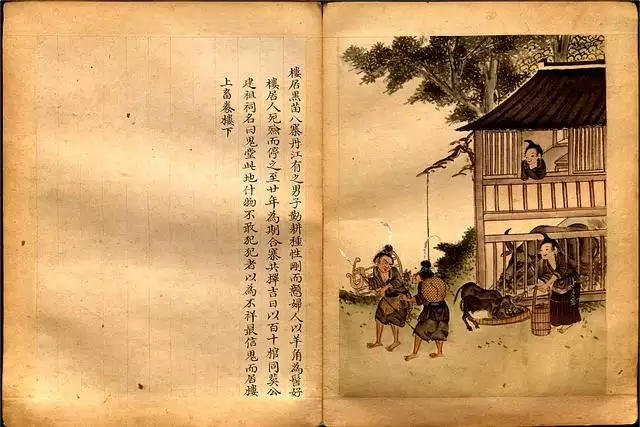 樓居黑苗八寨丹江有之男子勤耕種性剛而戇婦人以羊角為髻好
樓居人死殮而停之至廿年為期合寨共擇吉日以百十棺同葬公
建祖祠名曰鬼堂此地什物不敢犯犯者以為不祥最信鬼而居樓
上畜養樓下